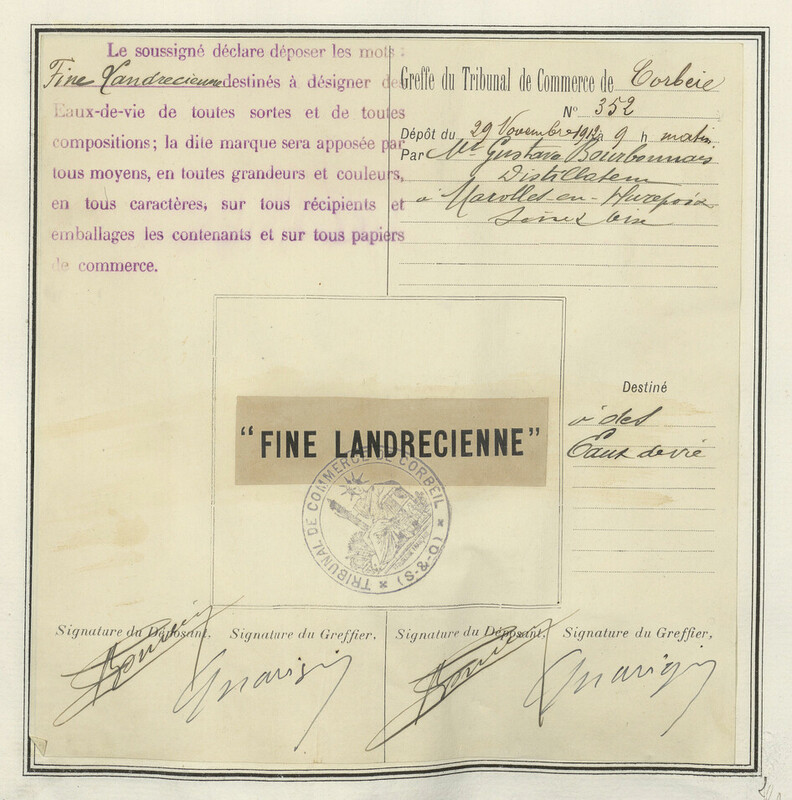 Le soussigné déclare déposer les mots :
Fine Landrecienne destinés à désigner des
Eaux-de-vie de toutes sortes et de toutes
compositions; la dite marque sera apposée par
tous moyens, en toutes grandeurs et couleurs,
en tous caractères, sur tous récipients et
emballages les contenants et sur tous papiers
de commerce.
Greffe du Tribunal de Commerce de Corbeil
N° 352
Dépôt du 29 Novembre 1912 à 9 h matin
Par Mr Gustave Bourbonnais
Distillateur
à Marolles-en-Hurepoix
Seine & Oise
Destiné
à des
Eaux de vie
“FINE LANDRECIENNE”
TRIBUNAL DE COMMERCE DE CORBEIL (O-&-S)
Signature du Déposant. Signature du Greffier. Signature du Déposant. Signature du Greffier,